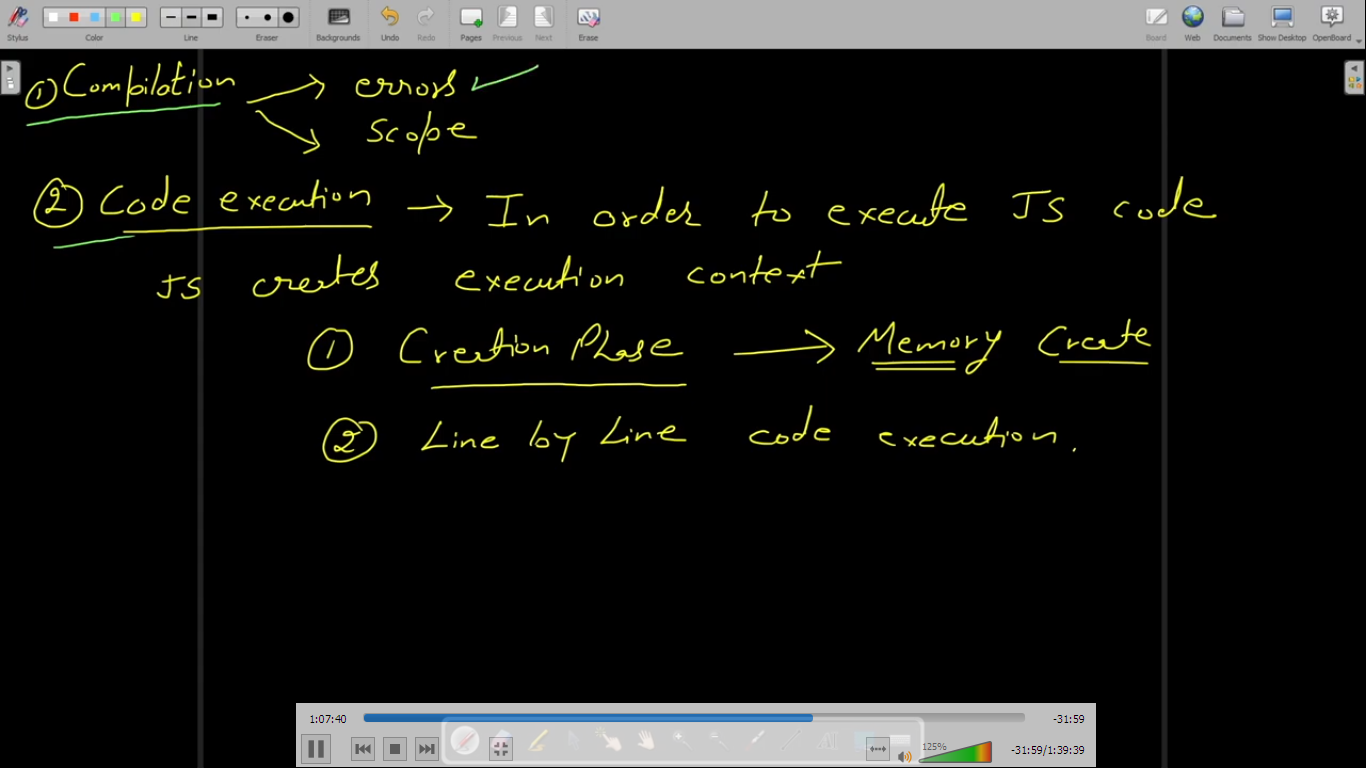 Stylus Color Line Eraser Backgrounds Undo Redo Pages Previous Next Erase Board Web Documents Show Desktop OpenBoard
① Compilation → errors ✓
→ Scope
② Code execution → In order to execute JS code
JS creates execution context
① Creation Phase → Memory Create
② Line by Line code execution.
1:07:40 -31:59
125% -31:59/1:39:39